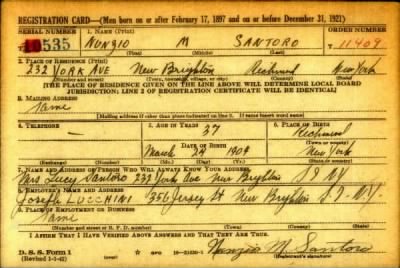 REGISTRATION CARD—(Men born on or after February 17, 1897 and on or before December 31, 1921)
SERIAL NUMBER 1. NAME (Print) ORDER NUMBER
10535 NUNZIO M SANTORO T 11409
(First) (Middle) (Last)
2. PLACE OF RESIDENCE (Print)
232 York Ave New Brighton Richmond New York
(Number and street) (Town, township, village, or city) (County) (State)
[THE PLACE OF RESIDENCE GIVEN ON THE LINE ABOVE WILL DETERMINE LOCAL BOARD
JURISDICTION; LINE 2 OF REGISTRATION CERTIFICATE WILL BE IDENTICAL]
3. MAILING ADDRESS
Same
[Mailing address if other than place indicated on line 2. If same insert word same]
4. TELEPHONE 5. AGE IN YEARS 6. PLACE OF BIRTH
— 37 Richmond
DATE OF BIRTH (Town or county)
March 24 1904 New York
(Mo.) (Day) (Yr.) (State or country)
7. NAME AND ADDRESS OF PERSON WHO WILL ALWAYS KNOW YOUR ADDRESS
Mrs Lucy Santoro 232 York Ave New Brighton S I NY
8. EMPLOYER'S NAME AND ADDRESS
Joseph LUCCHINI 356 Jersey St New Brighton S.I. N.Y.
9. PLACE OF EMPLOYMENT OR BUSINESS
Same
(Number and street or R. F. D. number) (Town) (County) (State)
I AFFIRM THAT I HAVE VERIFIED ABOVE ANSWERS AND THAT THEY ARE TRUE.
D. S. S. Form 1
(Revised 1-1-42) (over) Nunzio M. Santoro
(Registrant's signature)